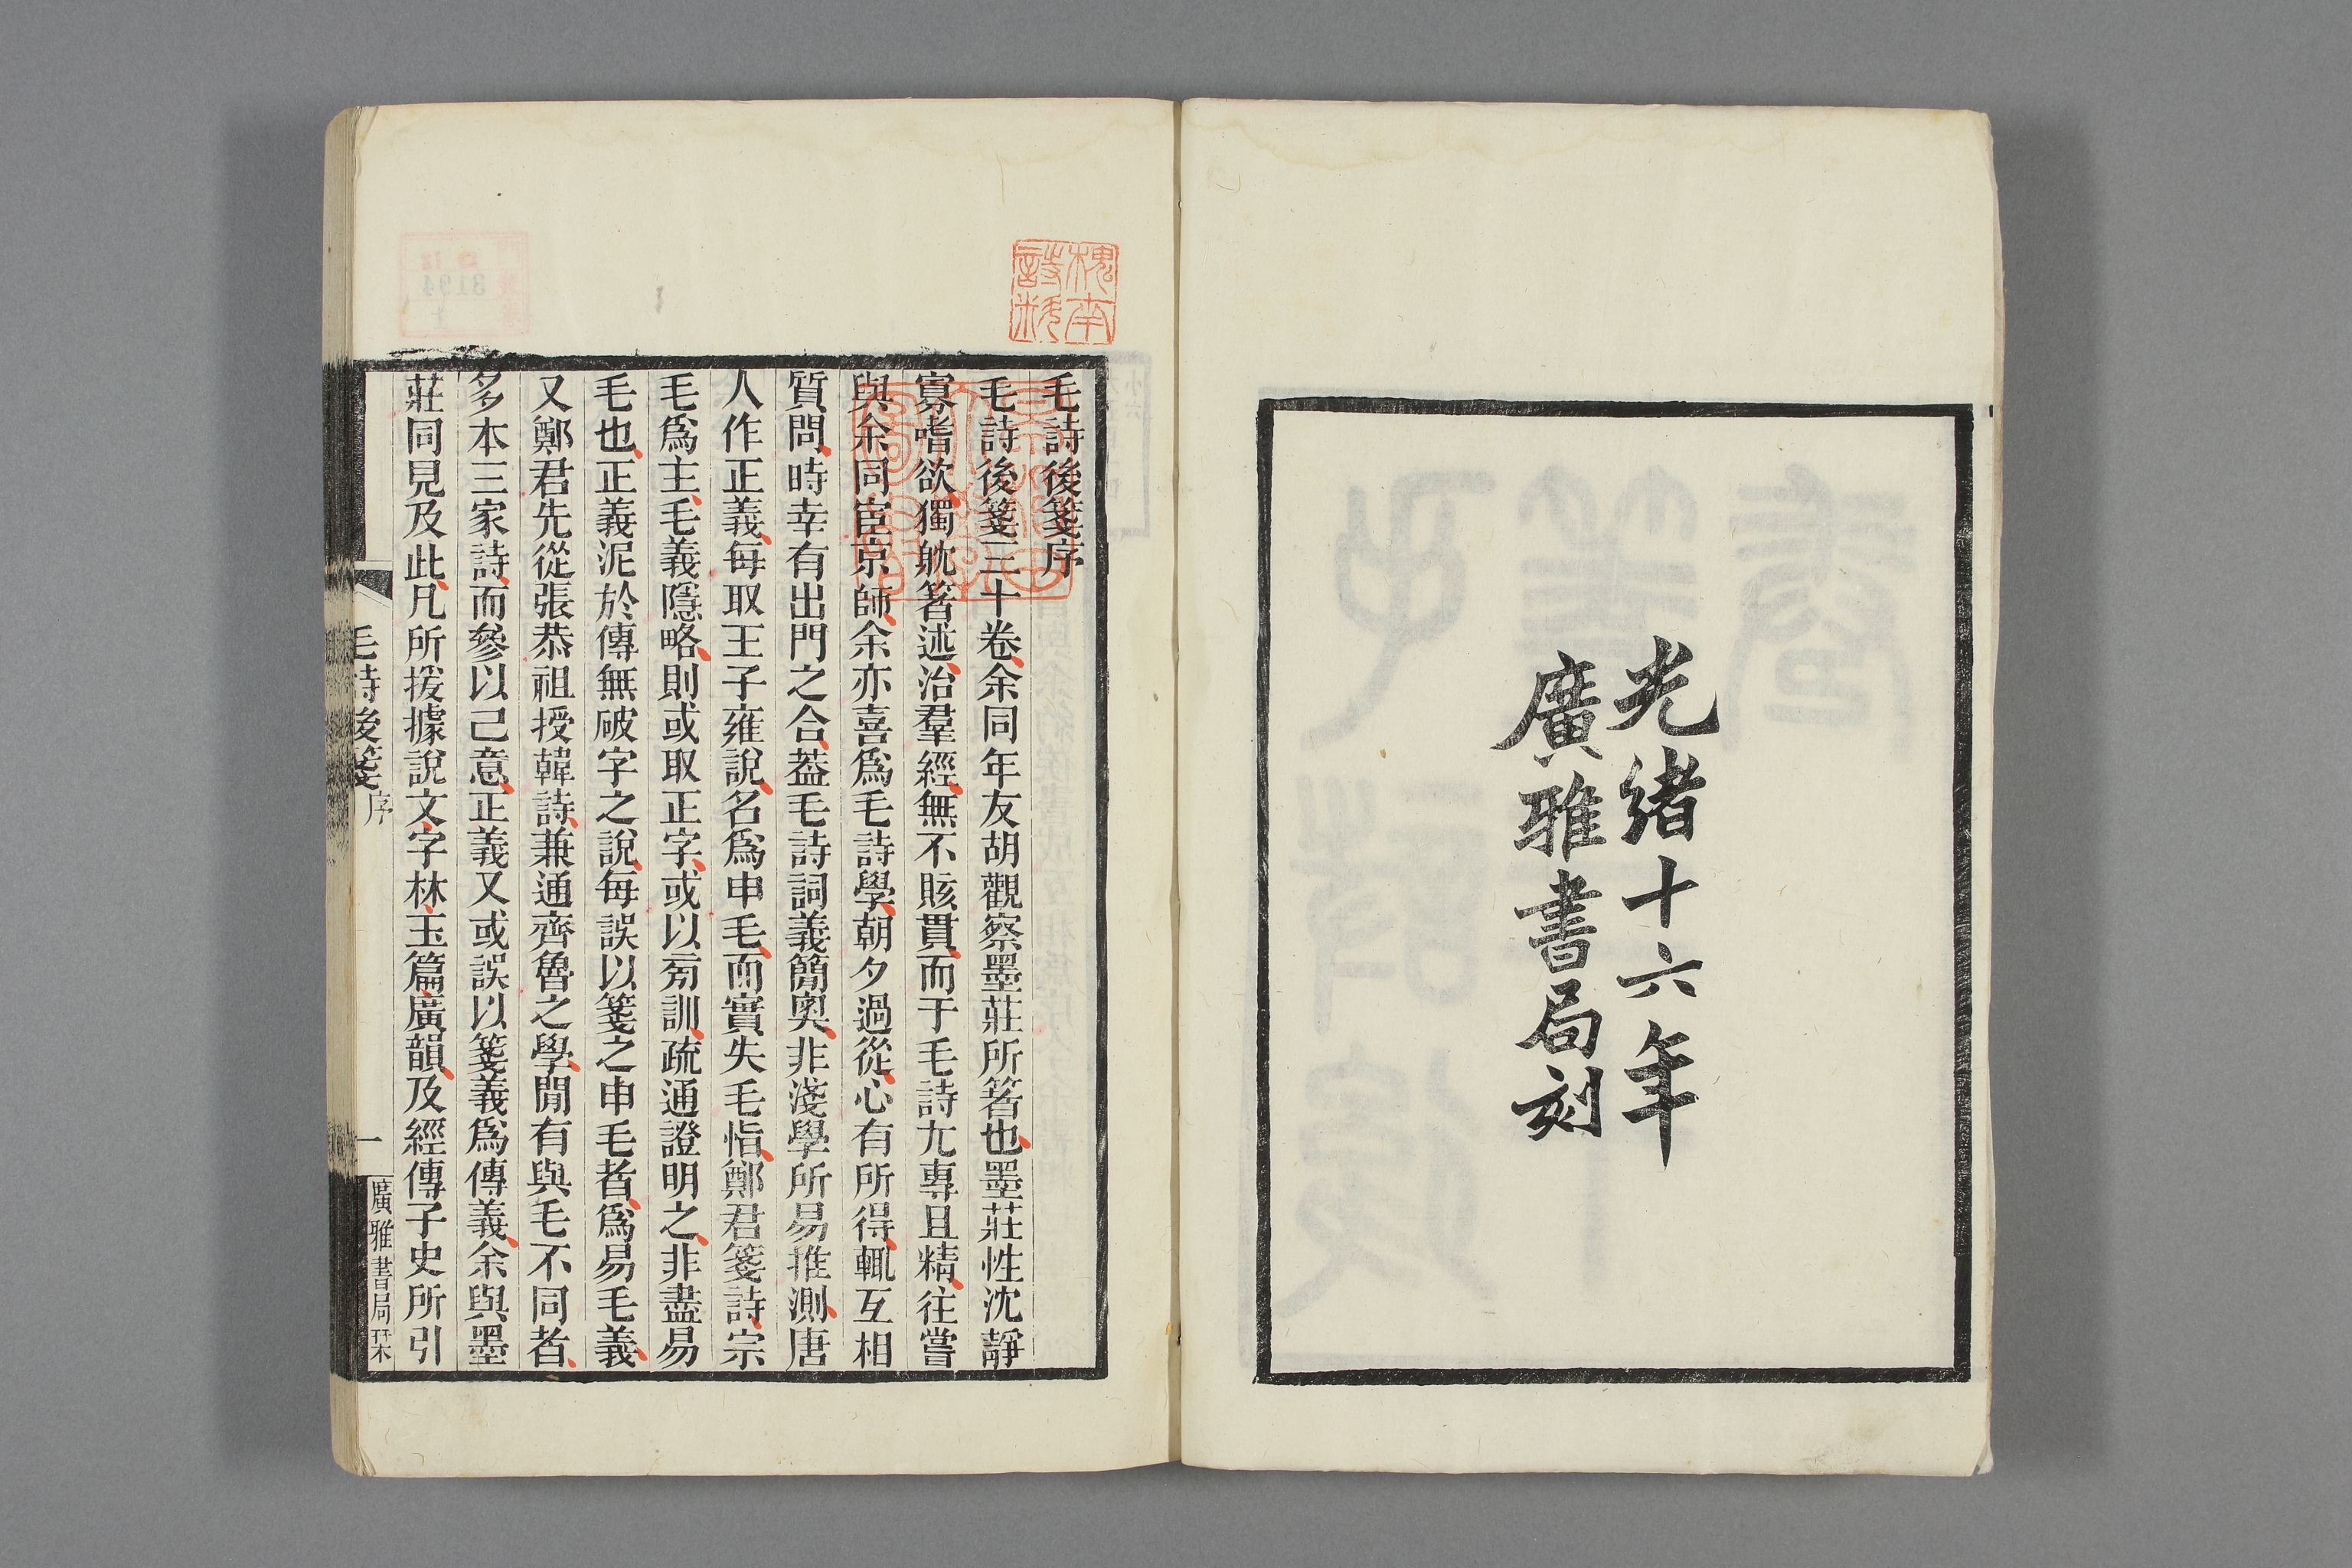 光緒十六年
廣雅書局刻
毛詩後箋序
毛詩後箋三十卷余同年友胡觀察墨莊所箸也墨莊性沈靜
寡嗜欲獨躭箸述治羣經無不賅貫而于毛詩尢專且精往嘗
與余同宦京師余亦喜爲毛詩學朝夕過從心有所得輒互相
質問時幸有出門之合葢毛詩詞義簡奧非淺學所易推測唐
人作正義每取王子雍說名爲申毛而實失毛恉鄭君箋詩宗
毛爲主毛義隱略則或取正字或以㫄訓疏通證明之非盡易
毛也正義泥於傳無破字之說每誤以箋之申毛者爲易毛義
又鄭君先從張恭祖授韓詩兼通齊魯之學閒有與毛不同者
多本三家詩而參以己意正義又或誤以箋義爲傳義余與墨
莊同見及此凡所援據說文字林玉篇廣韻及經傳子史所引
毛詩後箋 序
一
廣雅書局栞
槐南詩料
3194